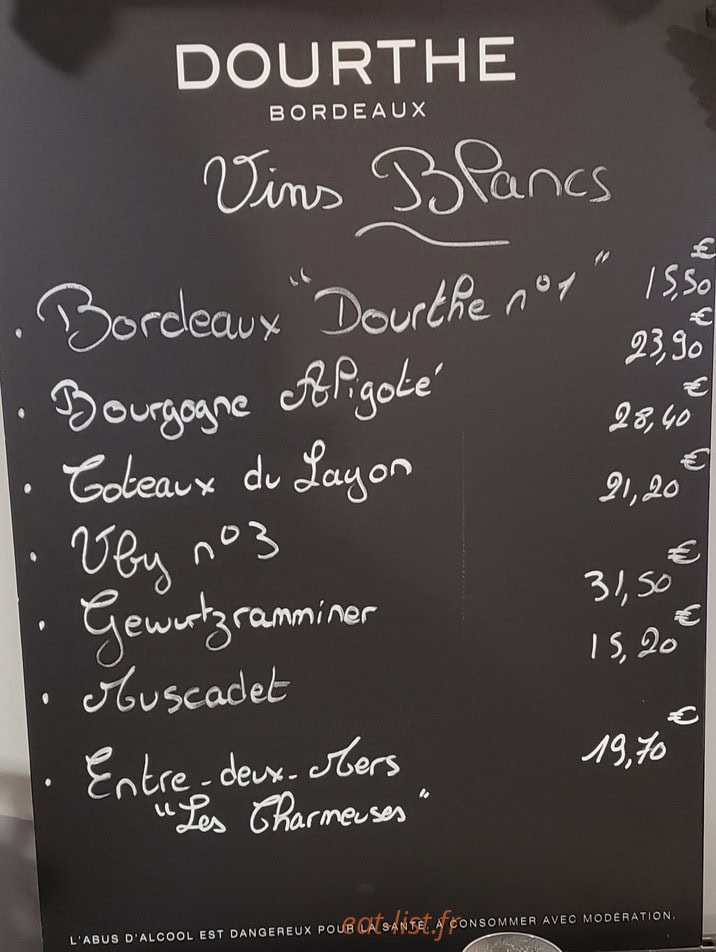 DOURTHE
BORDEAUX
Vins Blancs
. Bordeaux "Dourthe n°1" 15,50 €
. Bourgogne Aligoté 23,90 €
. Coteaux du Layon 28,40 €
. Uby n°3 21,20 €
. Gewurtzramminer 31,50 €
. Muscadet 15,20 €
. Entre-deux-Mers 19,70 €
"Les Charmeuses"
eat-list.fr
L'ABUS D'ALCOOL EST DANGEREUX POUR LA SANTÉ. À CONSOMMER AVEC MODÉRATION.